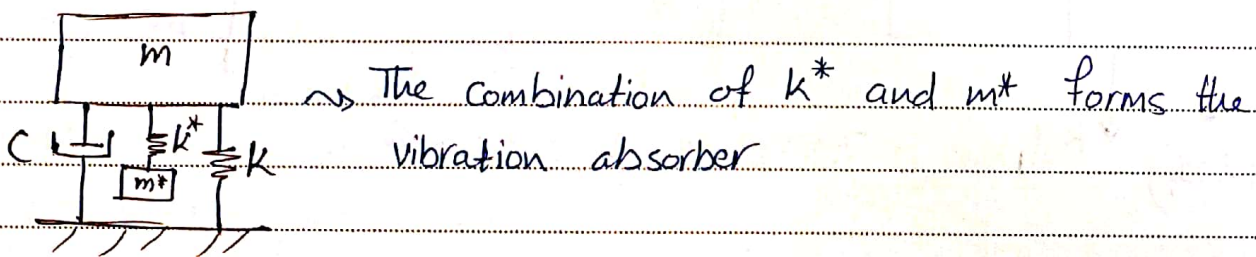 m
The combination of k* and m* forms the
C k* k
vibration absorber
m*